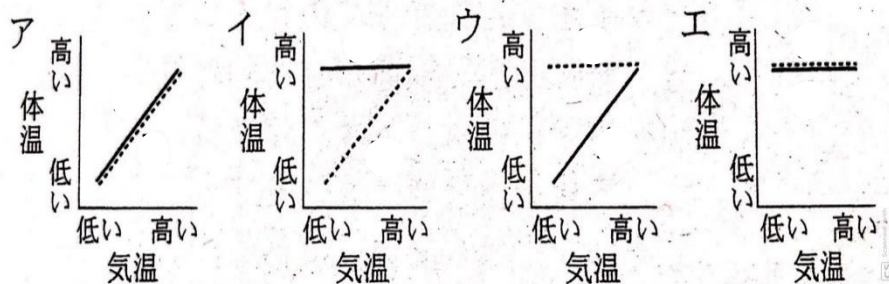 ア
高い
体温
低い
低い 高い
気温
イ
高い
体温
低い
低い 高い
気温
ウ
高い
体温
低い
低い 高い
気温
エ
高い
体温
低い
低い 高い
気温